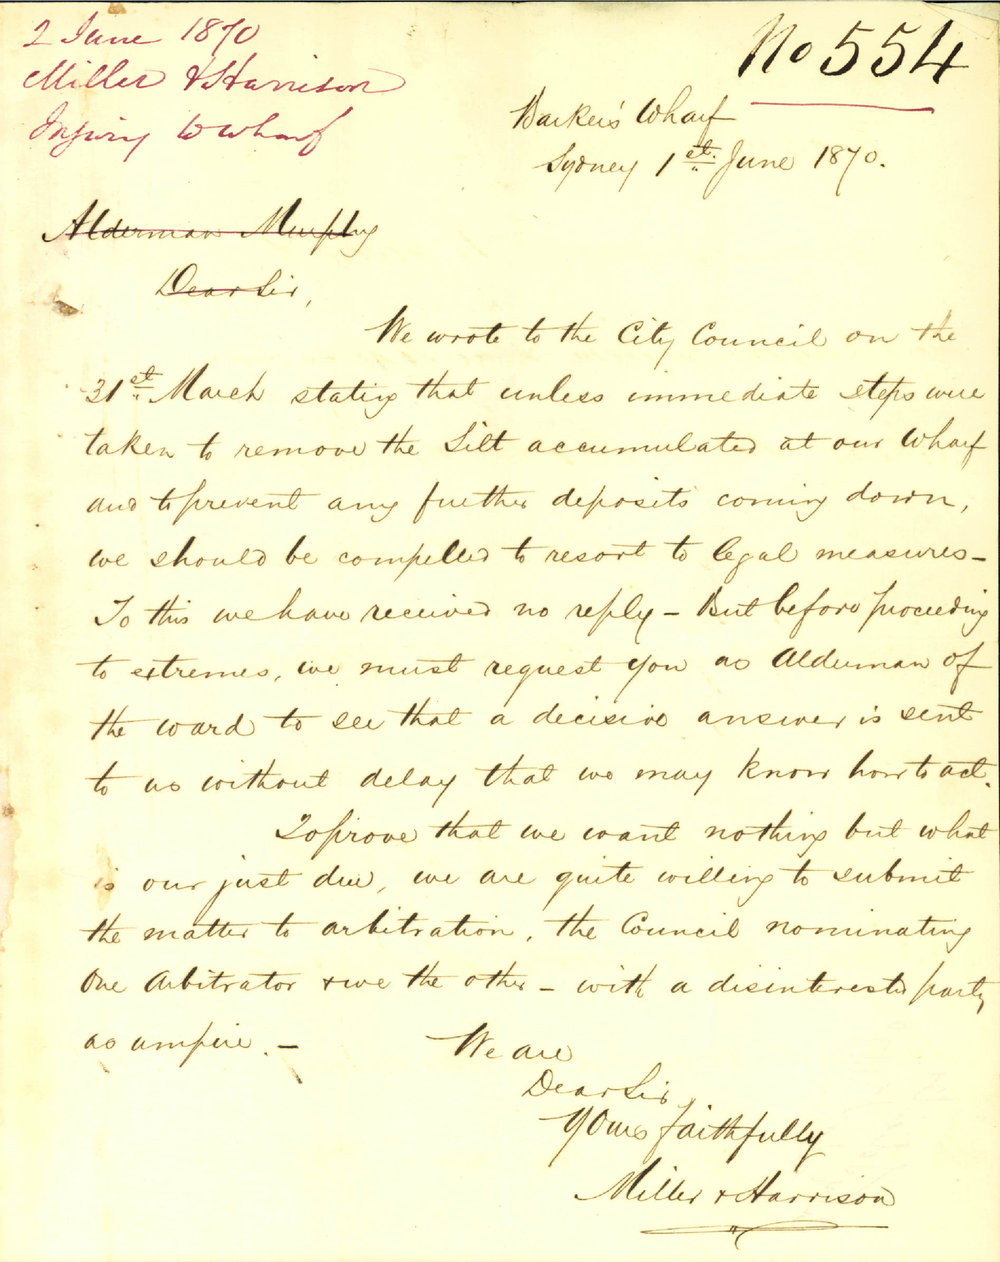 2 June 1870
Miller & Harrison
Injury to wharf
No 554
Barker's Wharf
Sydney 1st June 1870.
Alderman Murphy
Dear Sir,
We wrote to the City Council on the
31st March stating that unless immediate steps were
taken to remove the Silt accumulated at our Wharf
and to prevent any further deposits coming down,
we should be compelled to resort to legal measures –
To this we have received no reply – But before proceeding
to extremes, we must request you as Alderman of
the ward to see that a decisive answer is sent
to us without delay that we may know how to act.
To prove that we want nothing but what
is our just due, we are quite willing to submit
the matter to arbitration, the Council nominating
One Arbitrator & we the other – with a disinterested party
as umpire. –
We are
Dear Sir
Yours faithfully
Miller & Harrison